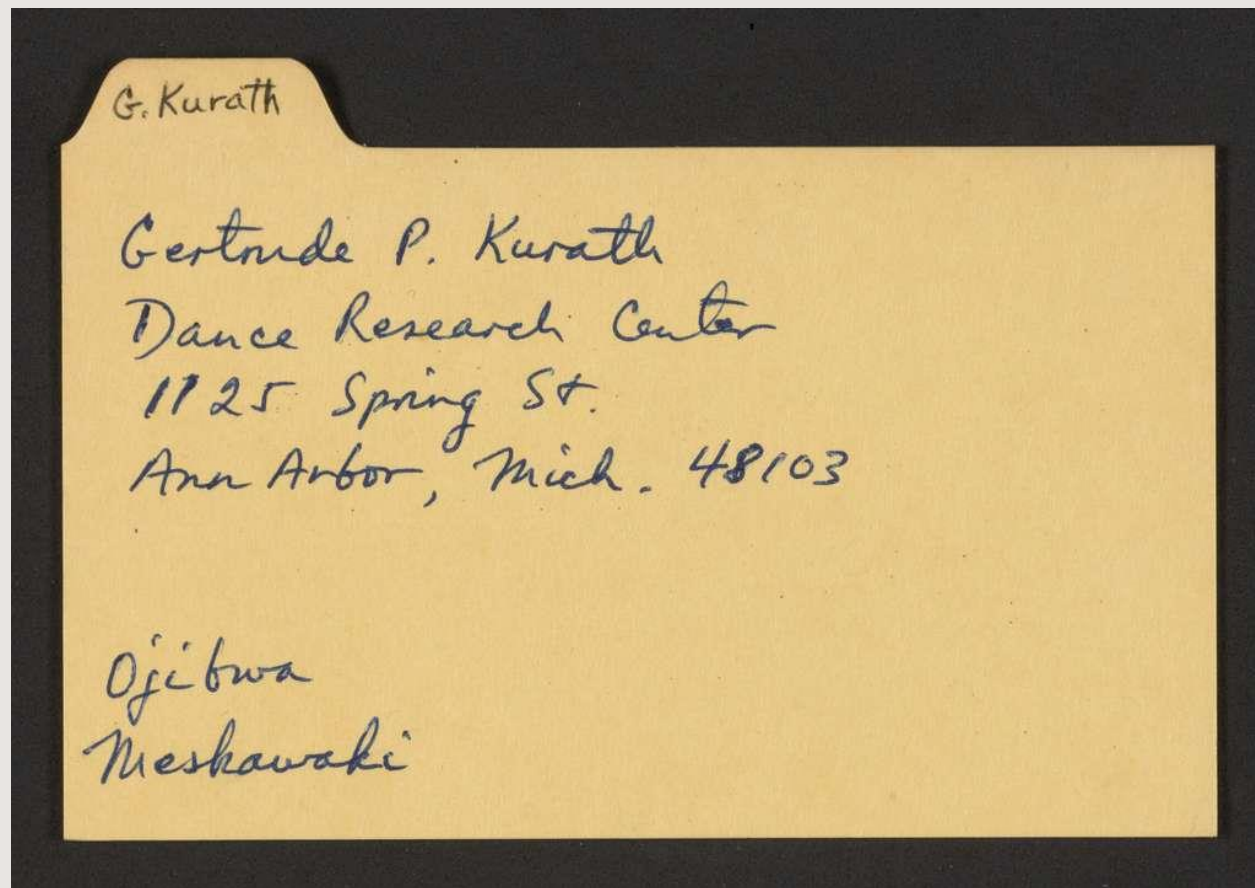 G. Kurath
Gertrude P. Kurath
Dance Research Center
1125 Spring St.
Ann Arbor, Mich. 48103
Ojibwa
Meskawaki